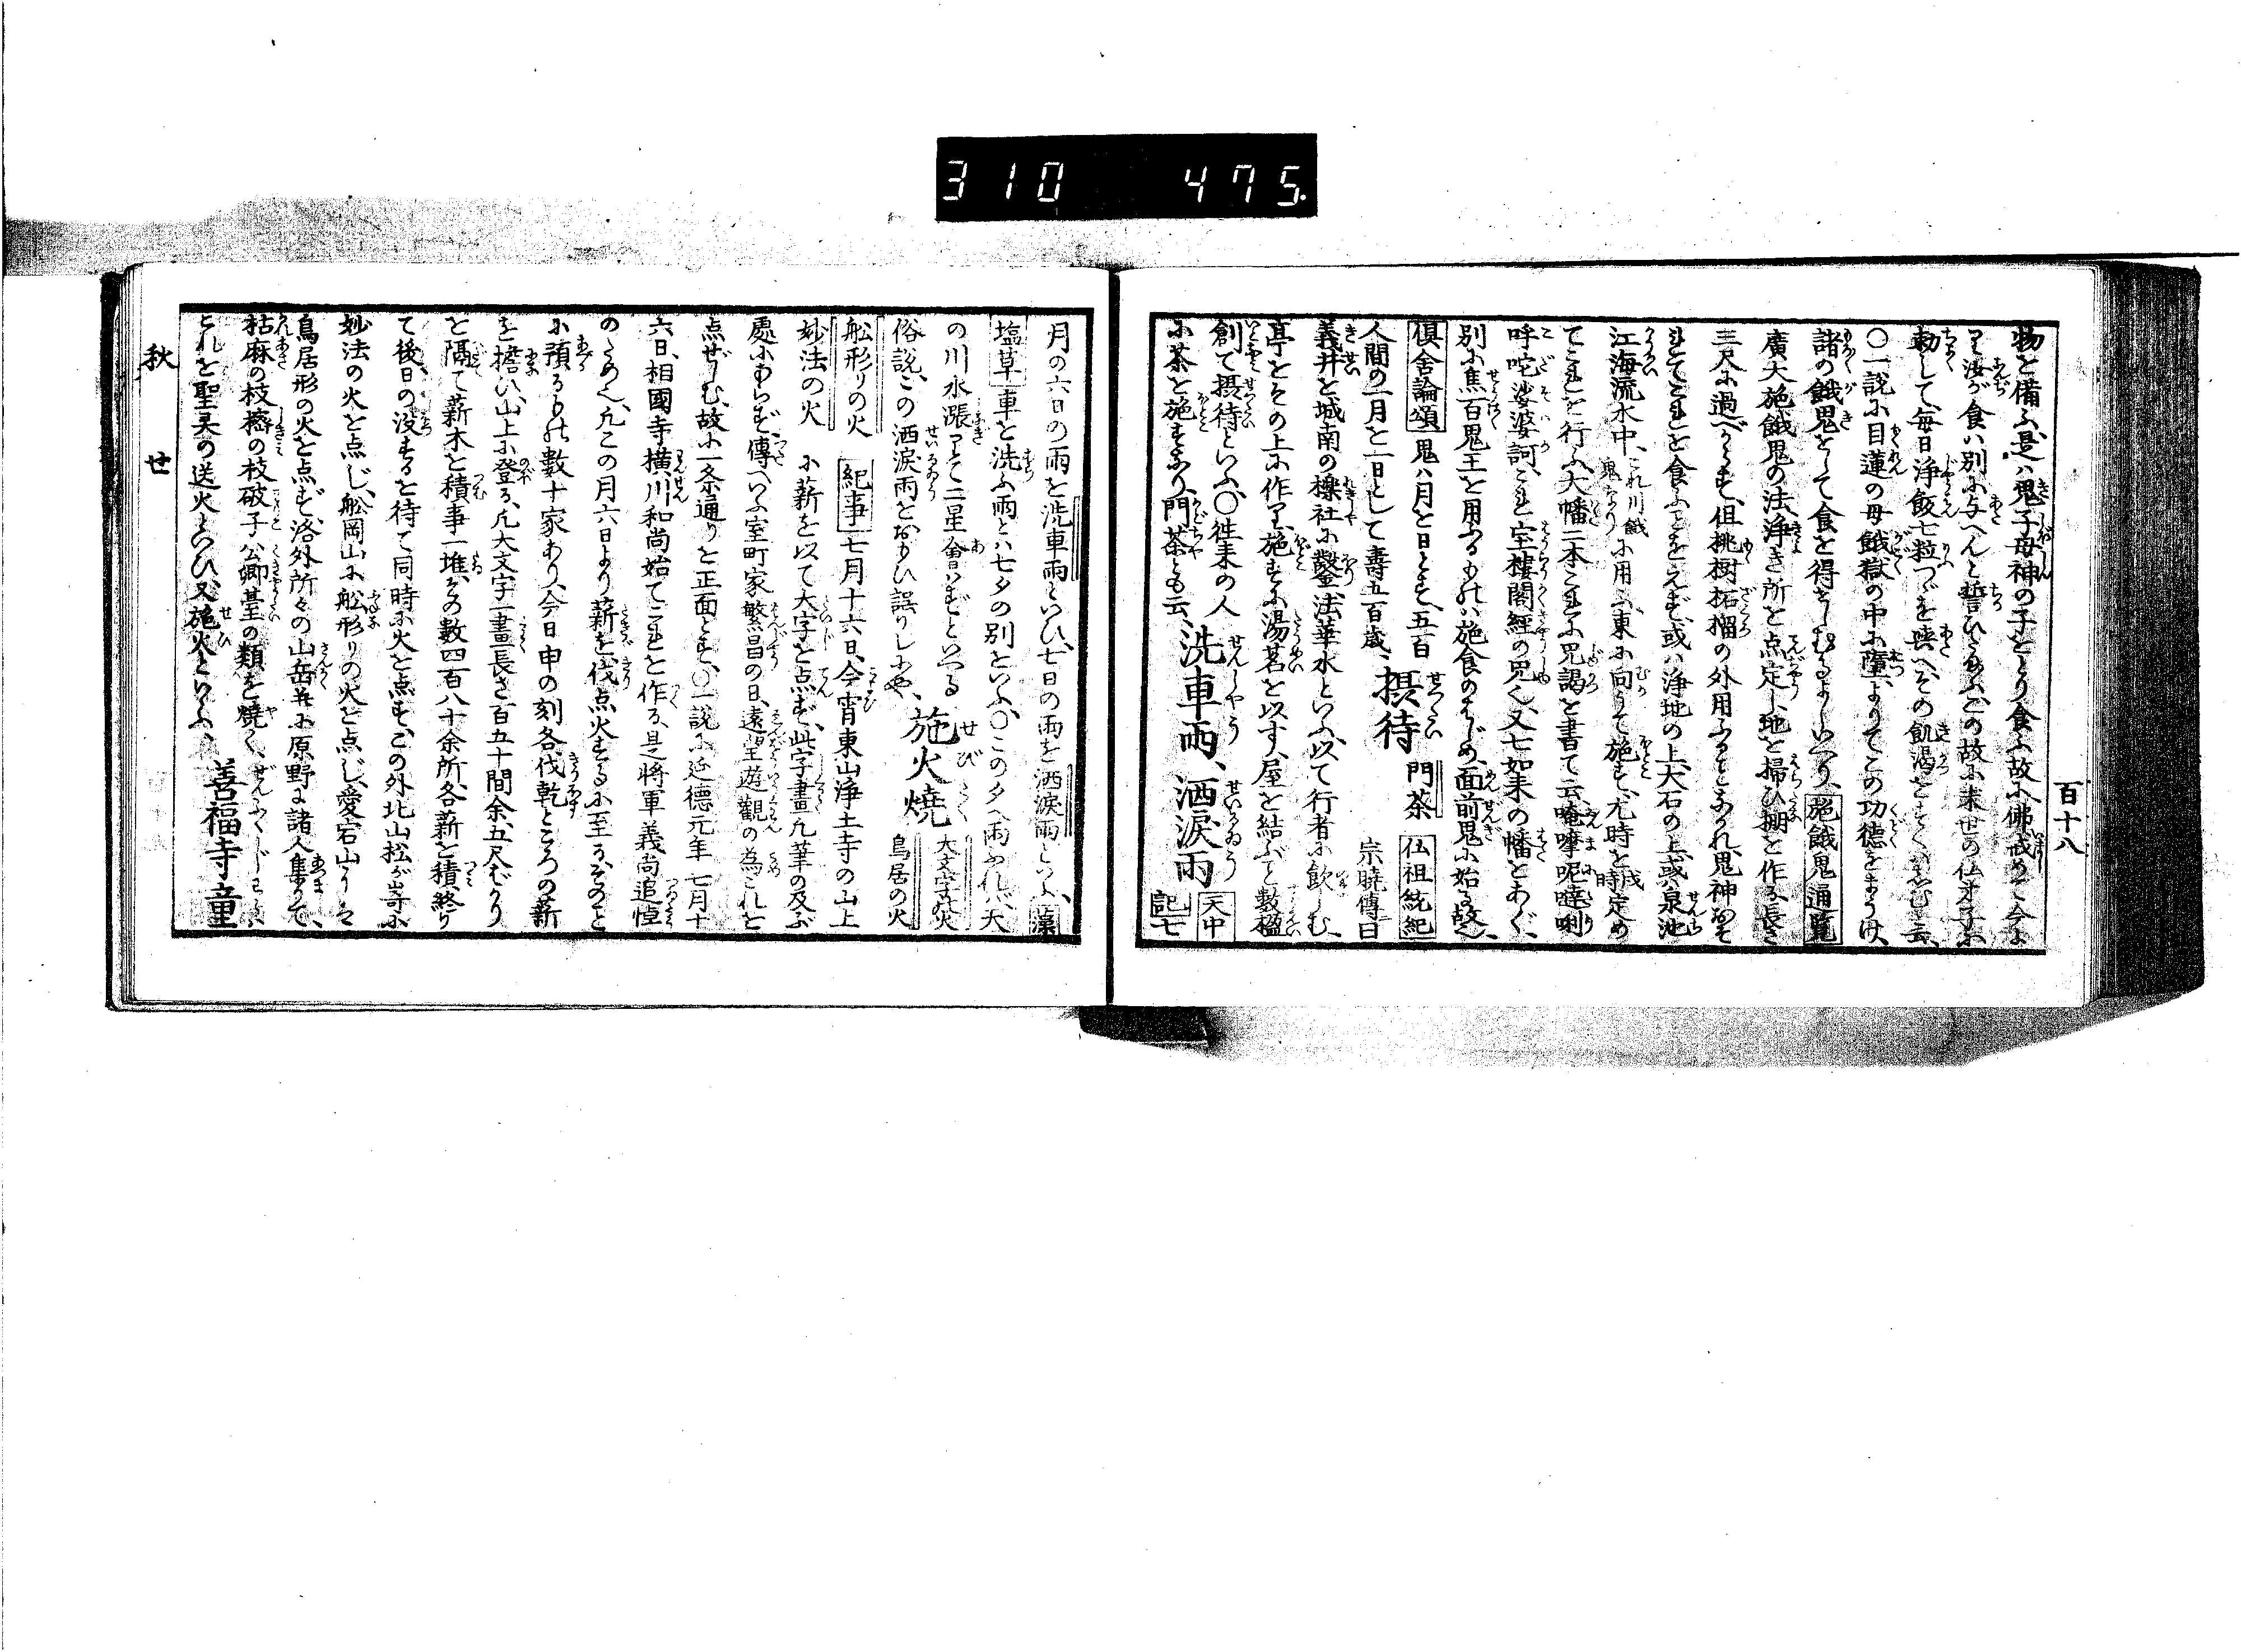 310 475.
百十八
物を備ふ、是ハ鬼子母神の子をとり食ふ故に佛戒めて今よ
り汝が食ハ別に与へんと誓ひ この故に末世の仏弟子に
勅して、毎日浄飯七粒づゝを 其の飢渇を 云、
〇一説に目蓮の母餓獄の中に墮、よりてこの功徳をまうけ、
諸の餓鬼をして食を得せしむるよしいへり、施餓鬼通覧
廣大施餓鬼の法、浄き所を点定し、地を掃ひ棚を作る、長さ
三尺に過べからず、但桃樹柘榴の外用ふることなかれ、鬼神おそ
れてこれを食ふことをえず、或ハ浄地の上、大石の上、或ハ泉池
江海流水中、これ川餓鬼なり に用ふ、東に向うて施す、尤時を戌時定め
てこれを行ふ、大幡二本これに咒謁を書て云、唵摩呢噠唎
呼咜娑婆訶、これ宝樓閣経の咒也、又七如来の幡をあぐ、
別に焦百鬼王を用ふるものハ施食のはじめ、面前鬼に始る故也、
倶舍論頌 鬼ハ月を日とす、五百
人間の一月を一日として壽五百歳、 摂待 せつたい 門茶 仏祖統紀 宗暁傳曰
義井を城南の櫟社に鑿、法華水といふ、以て行者に飲しむ、
亭をその上に作り、施すに湯茗を以す、屋を結ぶこと数楹
創て摂待といふ、〇徃来の人
に茶を施すなり、門茶とも云、 洗車雨、洒涙雨 天中記七
月の六日の雨を洗車雨といひ、七日の雨を洒涙雨といふ、藻
塩草 車を洗ふ雨とハ七夕の別といふ、〇この夕べ雨ふれバ、天
の川水漲りて二星會ハずといへる
俗説、この洒涙雨をおもひ誤りしにや、 施火燒 せび 大文字の火 鳥居の火
船形りの火 妙法の火 紀事 七月十六日、今宵東山浄土寺の山上
に薪を以て大字を点ず、此字畫凡筆の及ぶ
處にあらず、傳へいふ室町家繁昌の日、遠望遊觀の為これを
点ぜしむ、故に一条通りを正面とす、〇一説に延徳元年七月十
六日、相國寺横川和尚始てこれを作る、是将軍義尚追悼
のため也、凡この月六日より薪を伐、点火するに至る、そのこと
に預るもの數十家あり、今日申の刻各伐乾ところの薪
を擔ひ、山上に登る、凡大文字一畫長さ百五十間余、五尺ばかり
を隔て薪木を積事一堆、その數四百八十余所、各薪を積終り
て後、日の没するを待て同時に火を点す、この外北山松が嵜に
妙法の火を点じ、船岡山に船形りの火を点じ、愛宕山に
鳥居形の火を点ず、洛外所々の山岳并に原野に諸人集りて、
枯麻の枝樒の枝破子公卿䑓の類を燒く、
これを聖灵の送火といひ、又施火といふ、 善福寺童
秋 廿